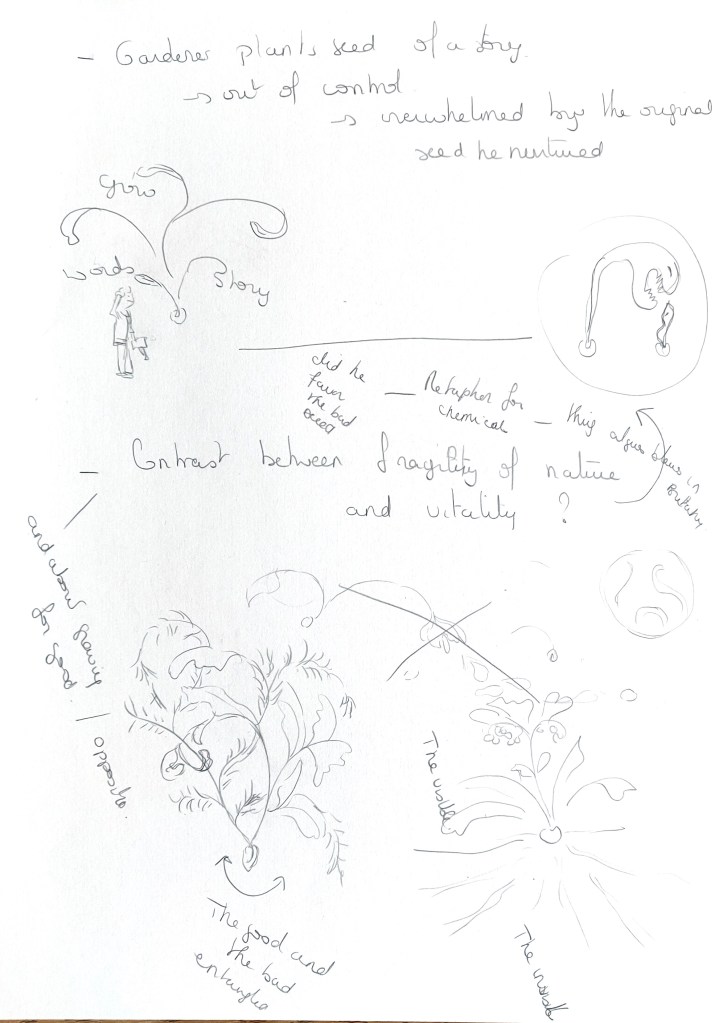 - Gardener plants seed of a story.
→ out of control
→ overwhelmed by the original
seed he nurtured
Grow
words
Story
did he
favor
the bad
seed
- Metaphor for
chemical
- thing algues in
Brittany
- Contrast between fragility of nature
and vitality ?
and about growing
for good
opposite
The visible
The good and
the bad
entangled
The